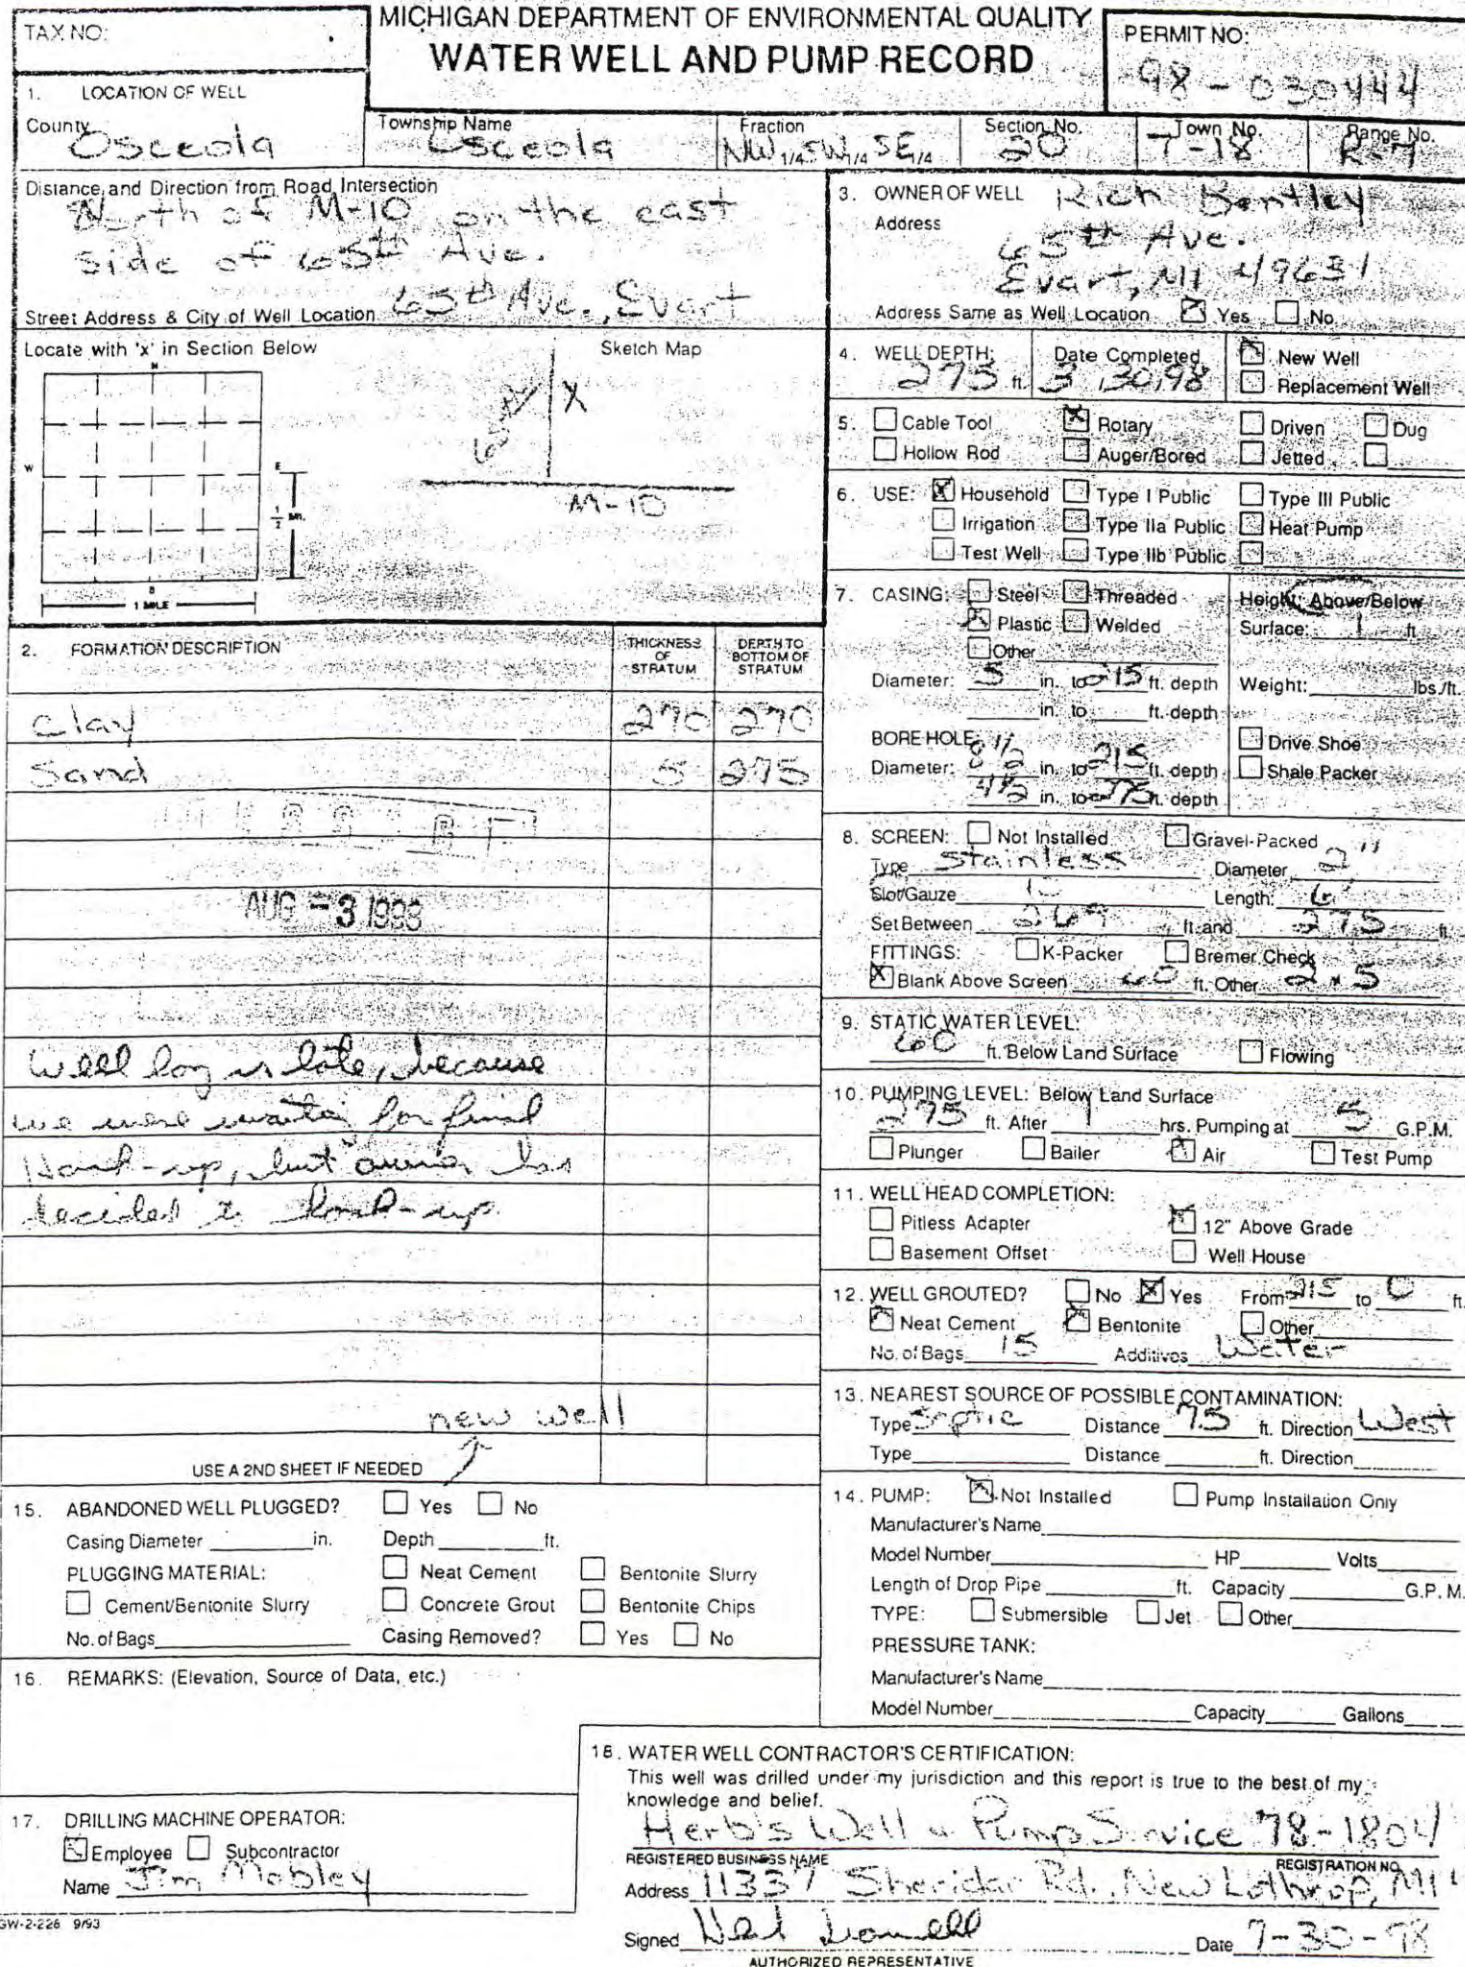 TAX NO:
MICHIGAN DEPARTMENT OF ENVIRONMENTAL QUALITY
WATER WELL AND PUMP RECORD
PERMIT NO:
98-030444
1. LOCATION OF WELL
County Osceola
Township Name Osceola
Fraction NW 1/4 SW 1/4 SE 1/4
Section No. 20
Town No. T-18
Range No. R-7
Distance and Direction from Road Intersection
North of M-10 on the east
side of 65th Ave.
Street Address & City of Well Location 65th Ave., Evart
Locate with 'x' in Section Below
Sketch Map
N
W
E
S
1/2 MI.
1 MILE
X
M-10
2. FORMATION DESCRIPTION
THICKNESS OF STRATUM
DEPTH TO BOTTOM OF STRATUM
Clay 270 270
Sand 5 275
AUG - 3 1998
Well log is late, because
we were waiting for final
Hook-up, but owner has
decided to hook-up
new well
USE A 2ND SHEET IF NEEDED
3. OWNER OF WELL Rich Bentley
Address
65th Ave.
Evart, MI 49631
Address Same as Well Location Yes No
4. WELL DEPTH: 275 ft.
Date Completed 3, 30, 98
New Well
Replacement Well
5. Cable Tool Rotary Driven Dug
Hollow Rod Auger/Bored Jetted
6. USE: Household Type I Public Type III Public
Irrigation Type IIa Public Heat Pump
Test Well Type IIb Public
7. CASING: Steel Threaded
Plastic Welded
Other
Diameter: 5 in. to 215 ft. depth
in. to ft. depth
BORE HOLE
Diameter: 8 1/2 in. to 215 ft. depth
4 1/2 in. to 275 ft. depth
Height: Above/Below
Surface: 1 ft.
Weight: lbs./ft.
Drive Shoe
Shale Packer
8. SCREEN: Not Installed Gravel-Packed
Type Stainless Diameter 2"
Slot/Gauze Length: 6'
Set Between 269 ft. and 275 ft.
FITTINGS: K-Packer Bremer Check
Blank Above Screen 60 ft. Other 2 x 5
9. STATIC WATER LEVEL:
60 ft. Below Land Surface Flowing
10. PUMPING LEVEL: Below Land Surface
275 ft. After 1 hrs. Pumping at 5 G.P.M.
Plunger Bailer Air Test Pump
11. WELL HEAD COMPLETION:
Pitless Adapter 12" Above Grade
Basement Offset Well House
12. WELL GROUTED? No Yes From 215 to 0 ft.
Neat Cement Bentonite Other
No. of Bags 15 Additives Water
13. NEAREST SOURCE OF POSSIBLE CONTAMINATION:
Type Septic Distance 75 ft. Direction West
Type Distance ft. Direction
14. PUMP: Not Installed Pump Installation Only
Manufacturer's Name
Model Number HP Volts
Length of Drop Pipe ft. Capacity G.P.M.
TYPE: Submersible Jet Other
PRESSURE TANK:
Manufacturer's Name
Model Number Capacity Gallons
15. ABANDONED WELL PLUGGED? Yes No
Casing Diameter in. Depth ft.
PLUGGING MATERIAL: Neat Cement Bentonite Slurry
Cement/Bentonite Slurry Concrete Grout Bentonite Chips
No. of Bags Casing Removed? Yes No
16. REMARKS: (Elevation, Source of Data, etc.)
17. DRILLING MACHINE OPERATOR:
Employee Subcontractor
Name Jim Mobley
GW-2-226 9/93
18. WATER WELL CONTRACTOR'S CERTIFICATION:
This well was drilled under my jurisdiction and this report is true to the best of my
knowledge and belief.
Herb's Well & Pump Service 78-1804
REGISTERED BUSINESS NAME REGISTRATION NO.
Address 11337 Sheridan Rd., New Lothrop, MI
Signed
Date 7-30-98
AUTHORIZED REPRESENTATIVE